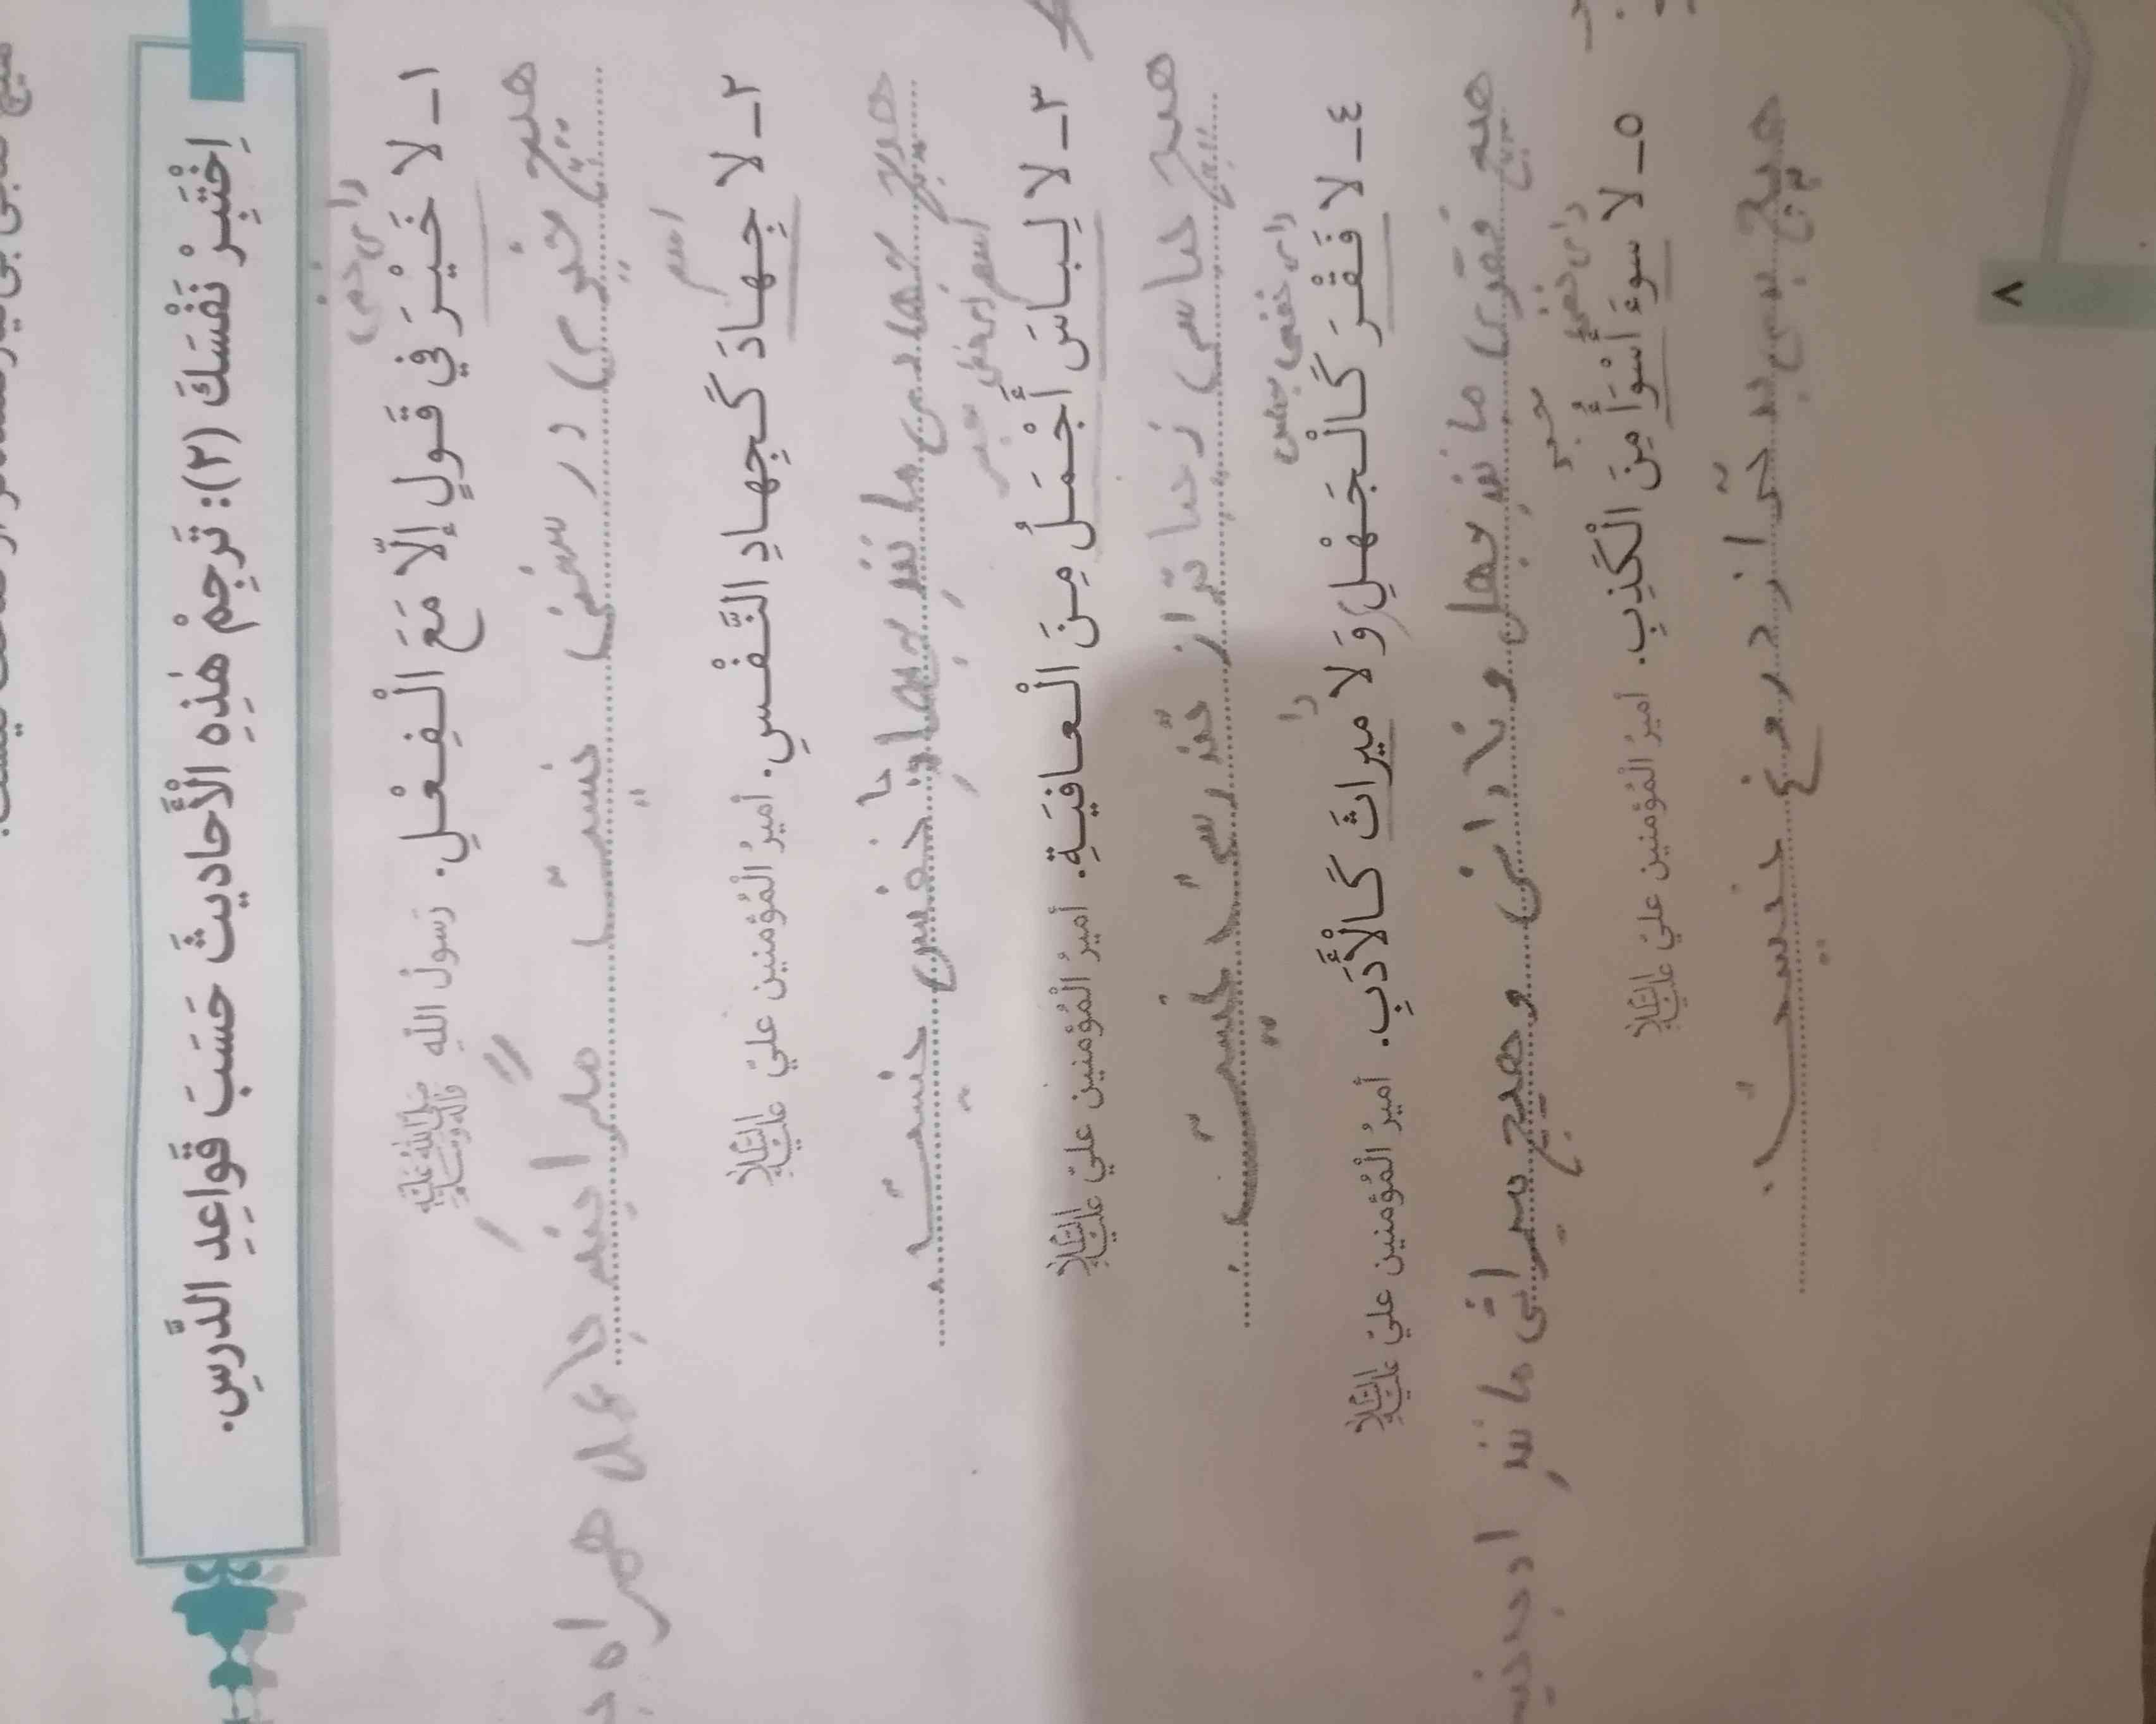 اِخْتَبِرْ نَفْسَكَ (٢): تَرْجِمْ هٰذِهِ الْأَحاديثَ حَسَبَ قَواعِدِ الدَّرسِ.
١ـ لا خَيْرَ في قَولٍ إلّا مَعَ الْفِعْلِ. رَسولُ اللهِ ﷺ
هیچ خیری در سخنی نیست مگر اینکه با عمل همراه
اسم
٢ـ لا جِهادَ كَجِهادِ النَّفْسِ. أميرُ الْمُؤمنين عليّ عليه السلام
هیچ جهادی مانند جهاد با نفس نیست.
٣ـ لا لِباسَ أَجْمَلُ مِنَ الْعافيَةِ. أميرُ الْمُؤمنين عليّ عليه السلام
هیچ لباسی زیباتر از تندرستی نیست.
٤ـ لا فَقْرَ كَالْجَهْلِ وَ لا ميراثَ كَالْأَدَبِ. أميرُ الْمُؤمنين عليّ عليه السلام
هیچ فقری مانند جهل و نادانی و هیچ میراثی مانند ادب
خبر
٥ـ لا سوءَ أَسْوَأُ مِنَ الْكَذِبِ. أميرُ الْمُؤمنين عليّ عليه السلام
هیچ بدی بدتر از دروغ نیست.
٨